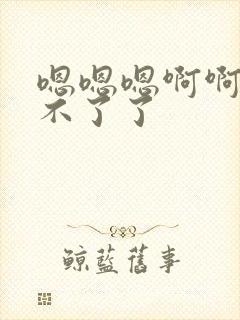 嗯嗯嗯啊啊
不了了
鲸藍舊事